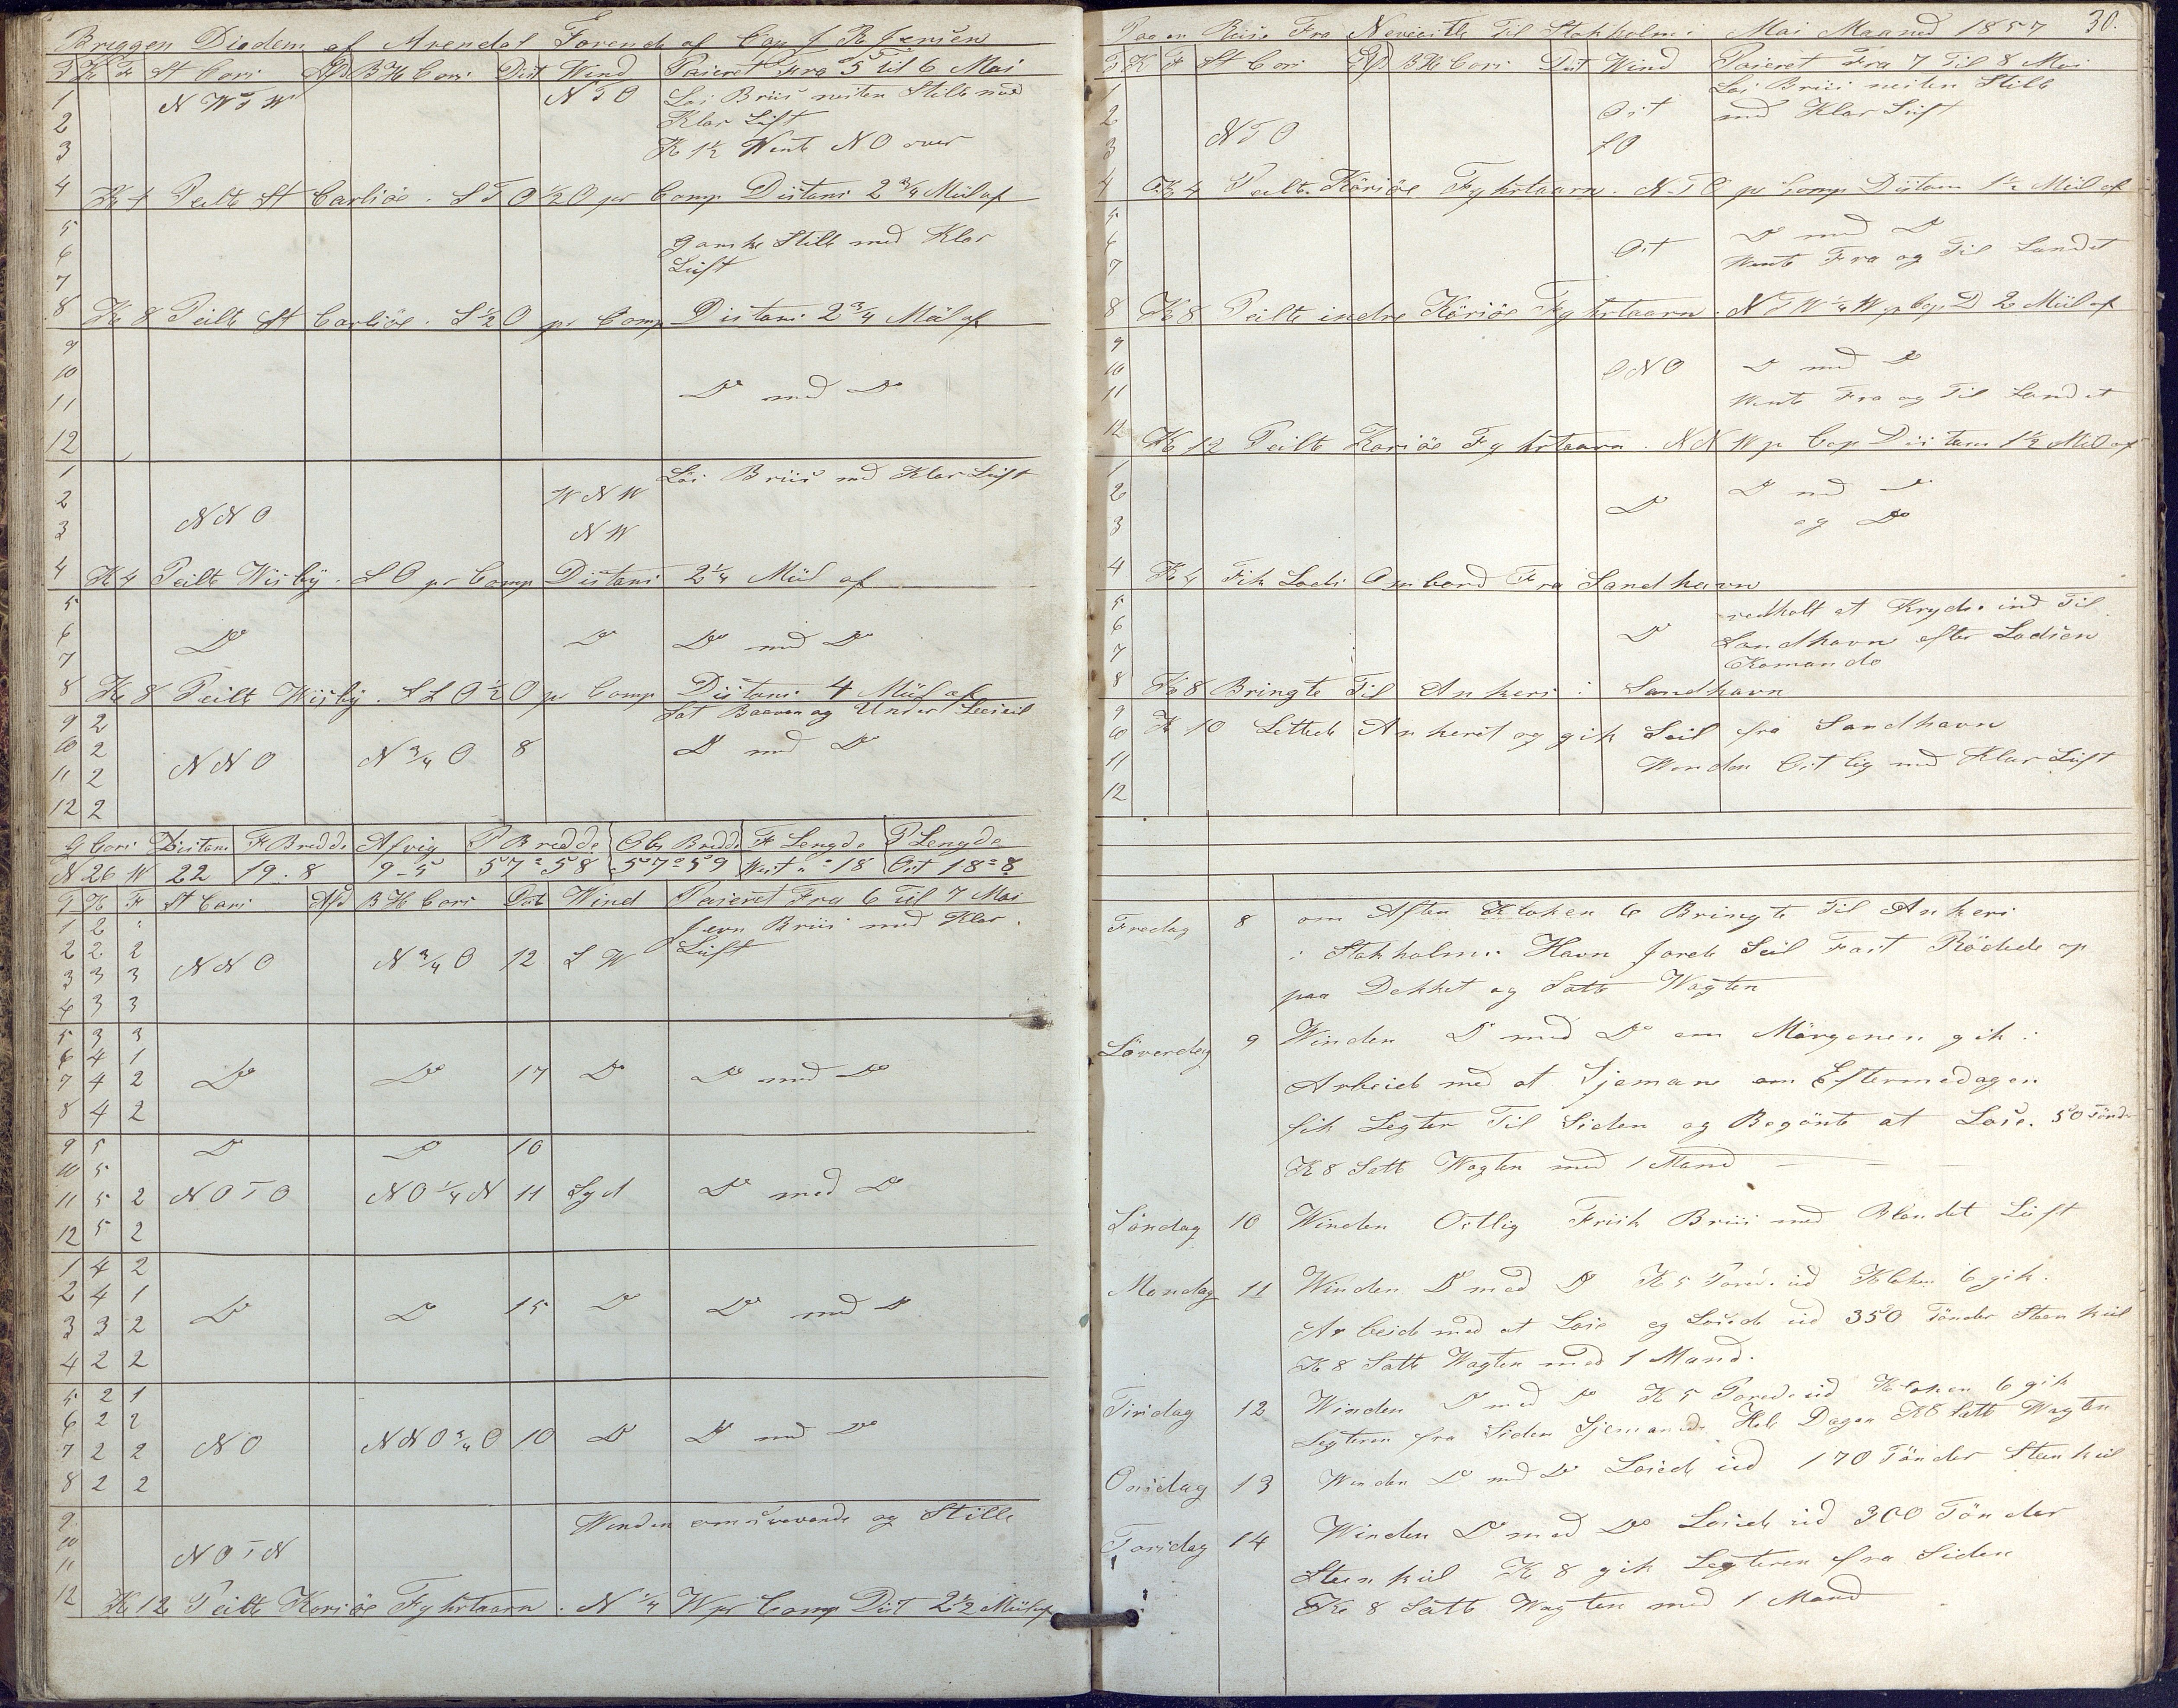 Briggen Diadem af Arendal Förende af Cap J R Jensen
T K F St Cors Afd B H Cors Dist Wind Paseret Fra 5 til 6 Mai
1 N W T W N T O Löi Briis nesten Stille med
2 Klar Lüft
3 K 1½ Wente N O over
4 Kl 4 Peilte St Carlsöe. S T O ½ O pr Comp Distans 2 3/4 Miil af
5
6 ganske Stille med Klar
7 Lüft
8 Kl 8 Peilte St Carlsöe. S ½ O pr Comp Distans 2 3/4 Miil af
9
10
11 Do med Do
12
1 Löi Briis med Klar Lüft
2 W N W
3 N N O N W
4 Kl 4 Peilte Wisby. S O pr Comp Distans 2 1/4 Miil af
5
6 Do Do Do med Do
7
8 Kl 8 Peilte Wisby. S S O ½ O pr Comp Distans 4 Miil af
9 2 Sat Baaven og Under Leeseil
10 2 Do med Do
11 2 N N O N 3/4 O 8
12 2
G Cors Distans F Bredde Afvig P Bredde Obs Bredde F Lengde P Lengde
N 26 W 22 19.8 9-5 57=58 57=59 West " 18 Ost 18=8
T K F St Cors Afd B H Cors Dist Wind Paseret Fra 6 Til 7 Mai
1 2 " Jevn Briis med Klar
2 2 2 Lüft
3 3 3 N N O N 3/4 O 12 S W
4 3 3
5 3 3
6 4 1
7 4 2 Do Do 17 Do Do med Do
8 4 2
9 5 Do Do 10
10 5
11 5 2 N O T O N O 1/4 N 11 Syd Do med Do
12 5 2
1 4 2
2 4 1
3 3 2 Do Do 15 Do Do med Do
4 2 2
5 2 1
6 2 2
7 2 2 N O N N O 3/4 O 10 Do Do med Do
8 2 2
9 Winden omsvevende og Stille
10
11 N O T N
12 Kl 12 Peilte Korsöe Fyhrtaarn. N 1/4 W pr Comp Dist 2 ½ Miil af
Paa en Reise Fra Neucastle Til Stokholm i Mai Maaned 1857 30.
T K F St Cors Afd B H Cors Dist Wind Paseret Fra 7 Til 8 Mai
1 Löi Briis nesten Stille
2 Ost med Klar Lüft
3 N T O S O
4 Kl 4 Peilte Körsöe Fyhrtaarn. N T O pr Comp Distans 1½ Miil af
5 Do med Do
6 Ost
7 Wente Fra og Til Landet
8 Kl 8 Peilte indre Körsöe Fyhrtaarn. N T W 1/4 W pr Cop D 2 Miil af
9
10 O N O Do med Do
11 Wente Fra og Til Landet
12 Kl 12 Peilte Korsöe Fyhrtaarn. N N W pr Cop Distans 1½ Miil af
1
2 Do Do med Do
3 og Do
4 Kl 4 Fik Lods Ombord Fra Sandhavn
5 vedholt at Krydse ind Til
6 Do Sandhavn efter Lodsen
7 Komando
8 Kl 8 Bringte Til Ankers i Sandhavn
9
10 Kl 10 Lettede Ankeret og gik Seil fra Sandhavn
11 Winden Ostlig med Klar Lüft
12
Fredag 8 om Aften Kloken 6 Bringte Til Ankers
i Stokholms Havn Jorde Seil Fast Röddede op
paa Dekket og Satte Wagten
Löverdag 9 Winden Do med Do om Mörgenen gik i
Arbeide med at Sjemane om Eftermedagen
fik Legter Til Siden og Begönte at Lose. 50 Tönder
Kl 8 Satte Wagten med 1 Mand
Söndag 10 Winden Ostlig Frisk Briis med Blandet Lüft
Mandag 11 Winden Do med Do Kl 5 Pored. ud Kloken 6 gik i
Arbeide med at Lose og Losede ud 350 Tönder Steenkül
Kl 8 Satte Wagten med 1 Mand.
Tirsdag 12 Winden Do med Do Kl 5 Pored. ud Kloken 6 gik
Legteren fra Siden Sjemanede Hele Dagen Kl 8 Satte Wagten
Onsdag 13 Winden Do med Do Losede ud 170 Tönder Steenkül
Torsdag 14 Winden Do med Do Losede ud 300 Tönder
Steenkül Kl 8 gik Legteren fra Siden
Kl 8 Satte Wagten med 1 Mand